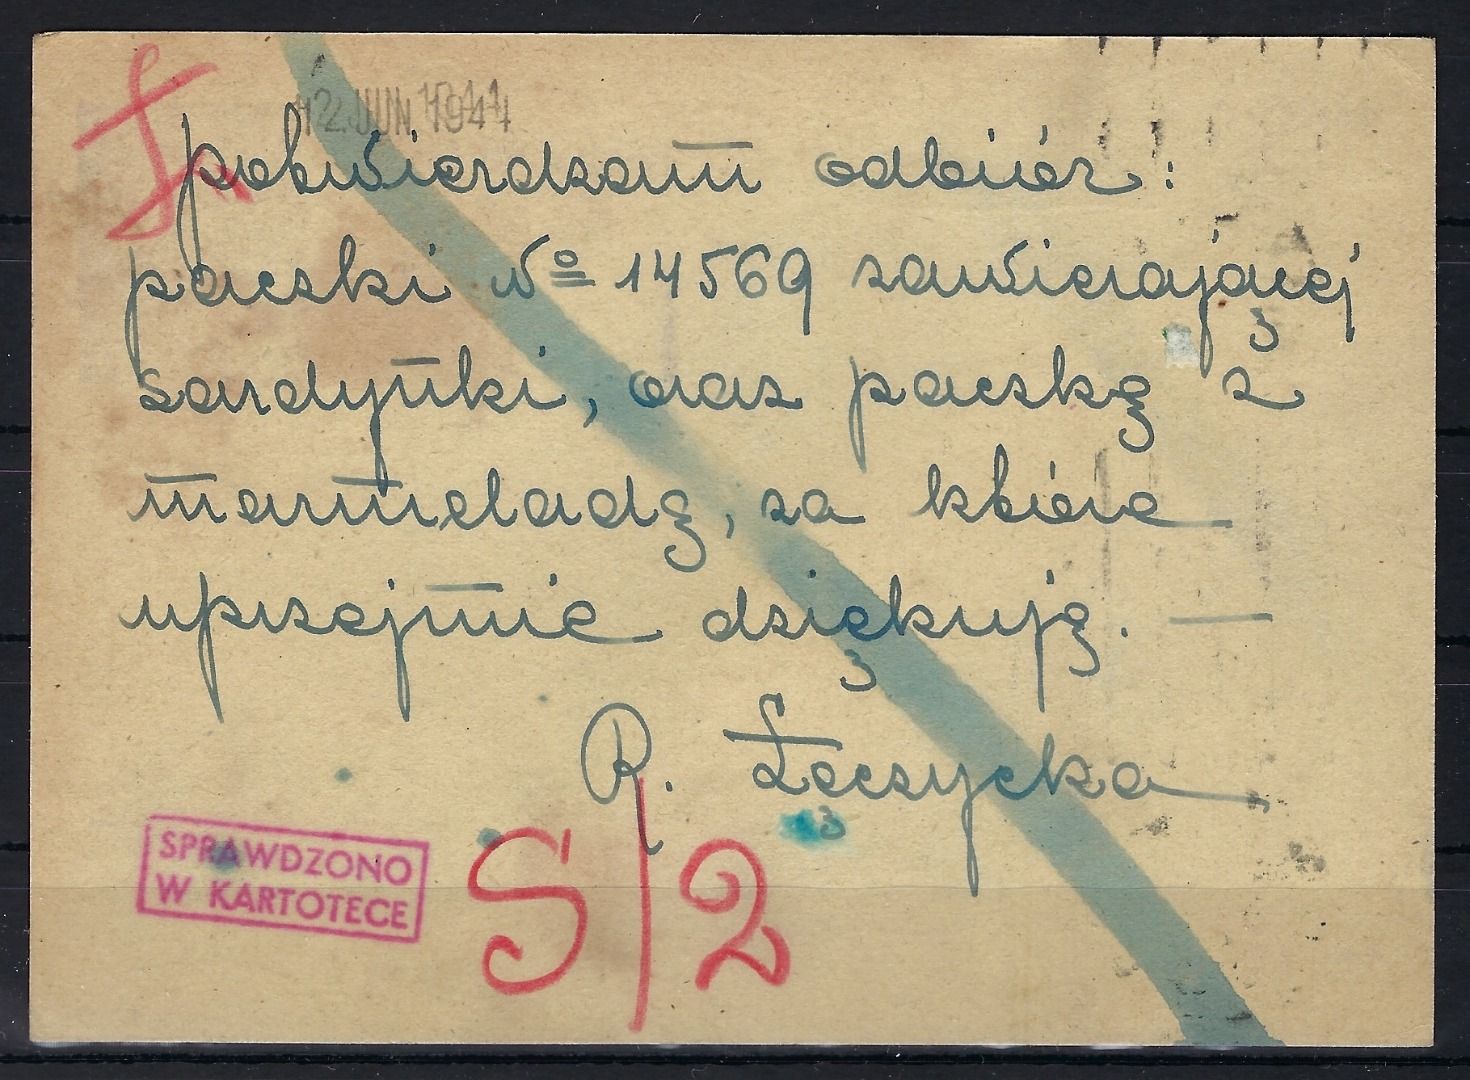 Ł
12. JUN 1944
potwierdzam odbiór:
paczki No 14569 zawierającej
sardynki, oraz paczkę z
marmeladą, za które
uprzejmie dziękuję. —
R. Łęczycka
SPRAWDZONO
W KARTOTECE
S/2